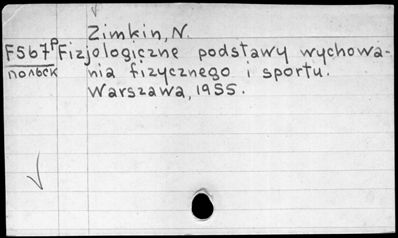 Zimkin, N.
F567P Fizjologiczne podstawy wychowa-
польск nia fizycznego i sportu.
Warszawa, 1955.